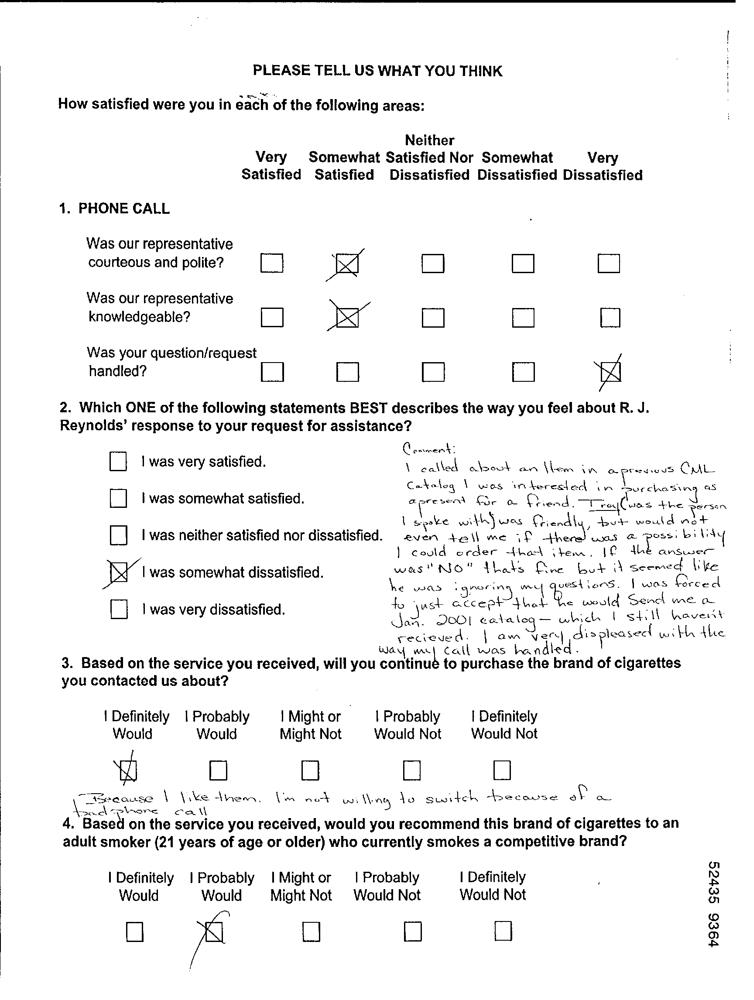 PLEASE TELL US WHAT YOU THINK
How satisfied were you in each of the following areas:
Neither
Very Somewhat Satisfied Nor Somewhat Very
Satisfied Satisfied Dissatisfied Dissatisfied Dissatisfied
1. PHONE CALL
Was our representative
courteous and polite?
Was our representative
knowledgeable?
Was your question/request
handled?
2. Which ONE of the following statements BEST describes the way you feel about R. J.
Reynolds' response to your request for assistance?
I was very satisfied.
I was somewhat satisfied.
I was neither satisfied nor dissatisfied.
I was somewhat dissatisfied.
I was very dissatisfied.
Comment:
I called about an Item in a previous CML
Catalog I was interested in purchasing as
a present for a friend. Troy (was the person
I spoke with) was friendly, but would not
even tell me if there was a possibility
I could order that item. If the answer
was "NO" that's fine but it seemed like
he was ignoring my questions. I was forced
to just accept that he would Send me a
Jan. 2001 catalog - which I still haven't
recieved. I am very displeased with the
way my call was handled.
3. Based on the service you received, will you continue to purchase the brand of cigarettes
you contacted us about?
I Definitely I Probably I Might or I Probably I Definitely
Would Would Might Not Would Not Would Not
Because I like them. I'm not willing to switch because of a
bad phone call
4. Based on the service you received, would you recommend this brand of cigarettes to an
adult smoker (21 years of age or older) who currently smokes a competitive brand?
I Definitely I Probably I Might or I Probably I Definitely
Would Would Might Not Would Not Would Not
52435 9364